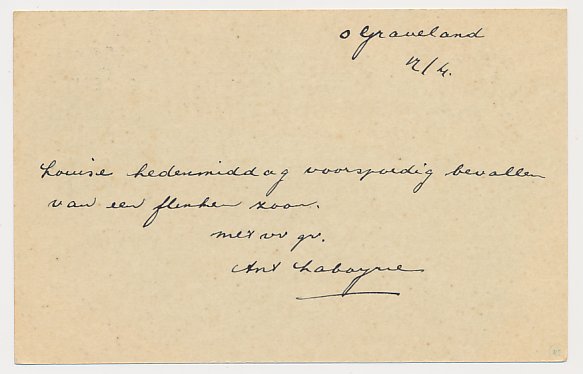 s Graveland
12/4.
Louise hedenmiddag voorspoedig bevallen
van een flinken zoon.
met vr gr.
Ant Laboyrie